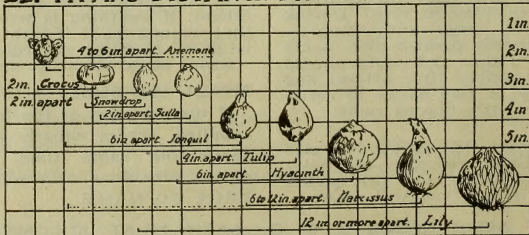 1in.
4 to 6 in. apart. Anemone
2in.
2in. Crocus
3in.
2in. apart
Snowdrop
2in. apart. Scilla
4in.
6in. apart. Jonquil
5in.
4in. apart. Tulip
6in. apart. Hyacinth
6 to 12 in. apart. Narcissus
12 in. or more apart. Lily